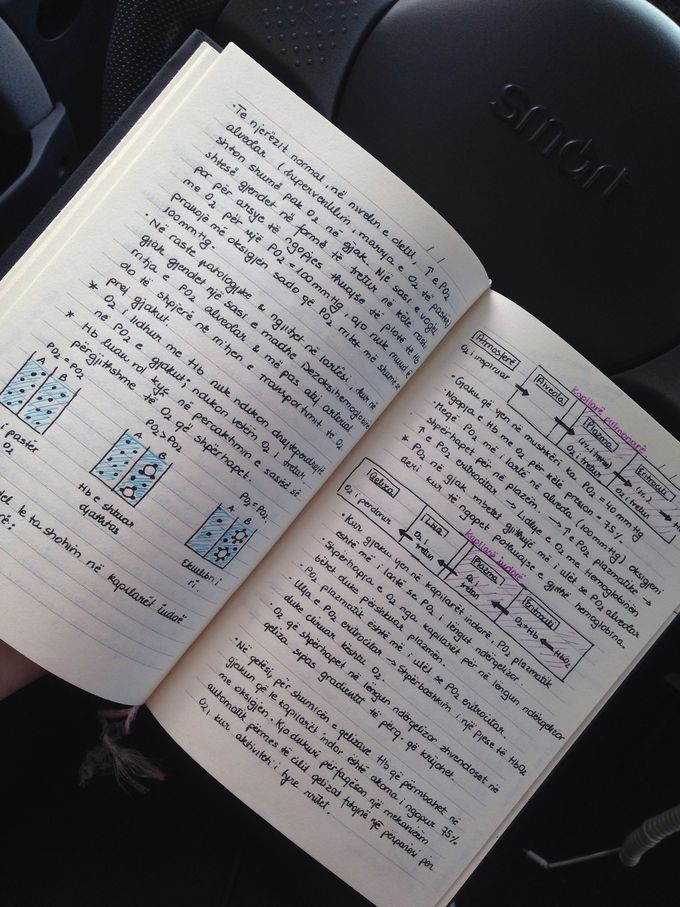 smart
• Te njerëzit normal, në nivelin e detit, ↑ e PO2
alveolar (hiperventilim, marrja e O2 të pastër)
shton shumë pak O2 në gjak. Një sasi e vogël
shtesë gjendet në formë të tretur në këtë rast
por për arsye të ngopjes thuajse të plotë të Hb
me O2 për një PO2 = 100mmHg, ajo nuk mund të
pranojë më oksigjen sado që PO2 rritet më shumë se
100mmHg.
• Në raste patologjike & ngjitjet në lartësi, kur në
gjak gjendet një sasi e madhe Dezoksihemoglobine
rritja e PO2 alveolar & më pas atij arterial
do të shpjerë në rritjen e transportimit të O2
prej gjakut.
* O2 i lidhur me Hb nuk ndikon drejtpërdrejtë
në PO2 e gjakut; ndikon vetëm O2 i tretur.
* Hb luan rol kyç në përcaktimin e sasisë së
përgjithshme të O2 që shpërhapet.
PO2 = PO2
A B
i pastër
O2
PO2 > PO2
A B
Hb e shtuar
djathtas
PO2 = PO2
A B
Ekuilibri i
ri.
le ta shohim në kapilarët indorë
Atmosferë
O2 i inspiruar
Alveola
Kapilarë pulmonarë
Plazma
O2 i tretur
Eritrocit
• Gjaku që vjen në mushkëri ka PO2 = 40mmHg
• Ngopja e Hb me O2 për këtë presion = 75%
• Meqë PO2 më i lartë në alveola (100mmHg) oksigjeni
shpërhapet për në plazëm. → ↑ e PO2 plazmatike →
↑ e PO2 eritrocitar → Lidhje e O2 me Hemoglobinën
* PO2 në gjak mbetet gjithnjë më i ulët se PO2 alveolar
deri kur të ngopet pothuajse e gjithë hemoglobina.
Qeliza
O2 i përdorur
O2 i
tretur
Kapilarë indorë
Plazma
O2 i
tretur
Eritrociti
O2 + Hb HbO2
• Kur gjaku vjen në kapilarët indorë, PO2 plazmatik
është më i lartë se PO2 i lëngut ndërqelizor
• Shpërhapja e O2 nga kapilarët për në lëngun ndërqelizor
bëhet duke përshkuar plazmën.
• PO2 plazmatik është më i ulët se PO2 eritrocitar.
• Ulja e PO2 eritrocitar → Shpërbashkim i një pjese të HbO2
duke çliruar kështu O2.
• O2 që shpërhapet në lëngun ndërqelizor zhvendoset në
qeliza sipas gradientit të përq. që krijohet.
• Në qetësi, për shumicën e qelizave, Hb që përmbahet në
gjakun që le kapilarët indor është akoma i ngopur 75%
me oksigjen. Kjo dukuri përfaqëson një mekanizëm
automatik përmes të cilit qelizat fitojnë një përparësi për
O2 i kur aktiviteti i tyre rritet.